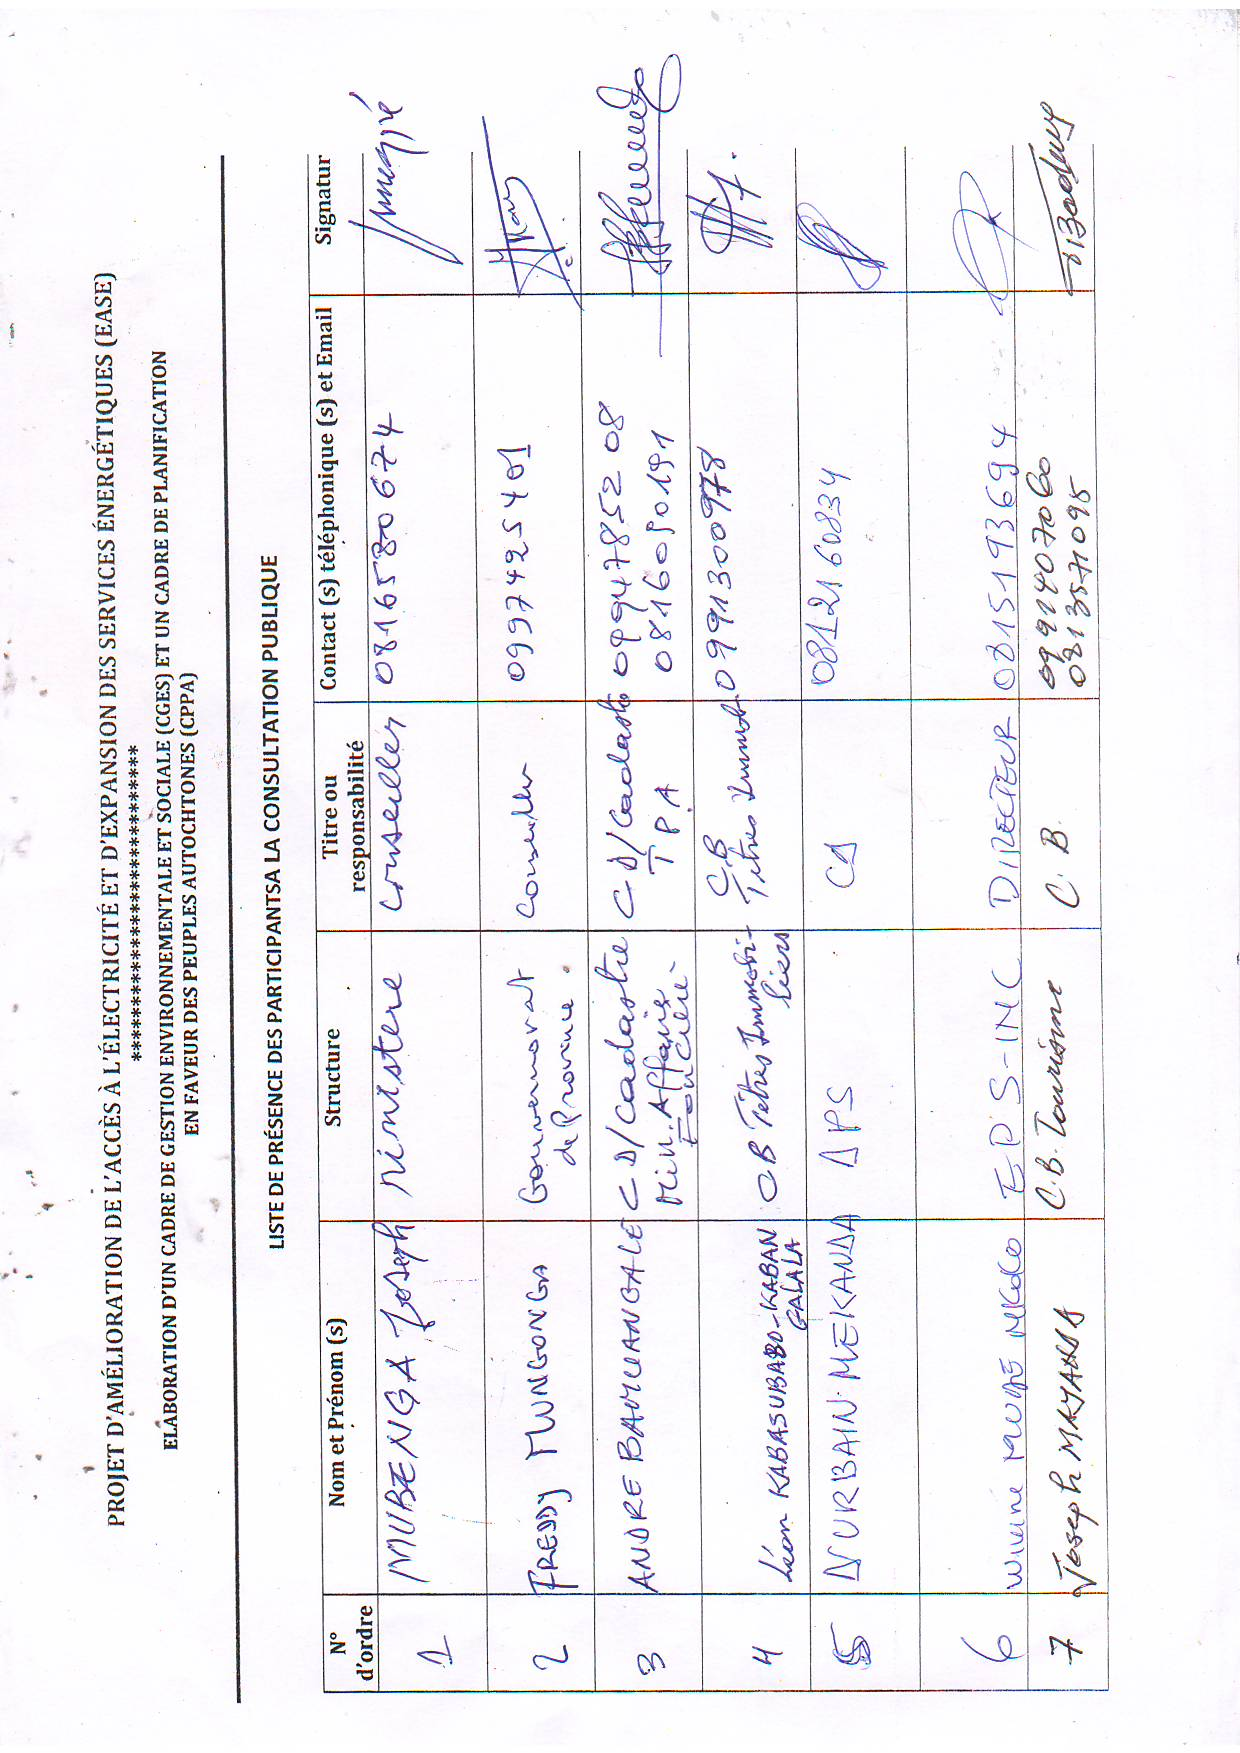 PROJET D'AMÉLIORATION DE L'ACCÈS À L'ÉLECTRICITÉ ET D'EXPANSION DES SERVICES ÉNERGÉTIQUES (EASE)
********************************
ELABORATION D'UN CADRE DE GESTION ENVIRONNEMENTALE ET SOCIALE (CGES) ET UN CADRE DE PLANIFICATION
EN FAVEUR DES PEUPLES AUTOCHTONES (CPPA)
LISTE DE PRÉSENCE DES PARTICIPANTSA LA CONSULTATION PUBLIQUE
N° d'ordre Nom et Prénom (s) Structure Titre ou responsabilité Contact (s) téléphonique (s) et Email Signatur
1 MUBENGA Joseph Ministere Conseiller 0816580674
2 FREDDY MUNGONGA Gouvernorat de Province Conseiller 0997425401
3 ANDRE BAMUANGALE C D/Cadastre Min. Affaires Foncière C D/Cadastre T P A 09947852 08
0816090191
4 Léon KABASUBABO-KABAN GALALA CB Titres Immobiliers C.B Titres Immob. 0991300978
5 NURBAIN MEKANDA DPS CD 0812160834
6 EPS-INC DIRECTEUR 0815193694
7 Joseph MAYANDA C.B. Tourisme C. B. 0991407060
0813571095